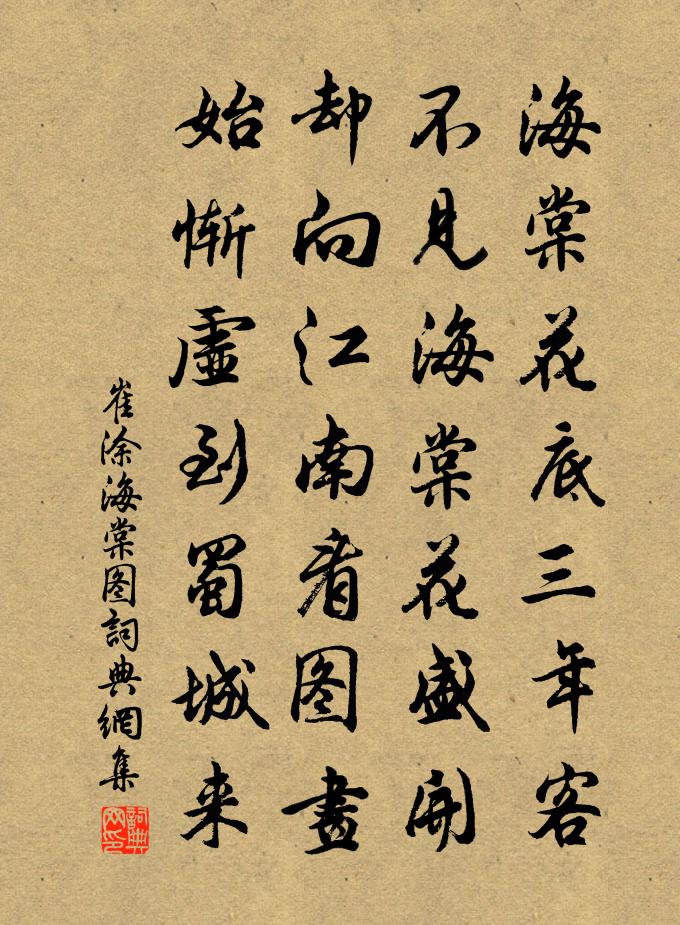 海棠花底三年客
不见海棠花盛開
却向江南看图畫
始惭虚到蜀城来
崔涂海棠图詞典網集
詞典网印